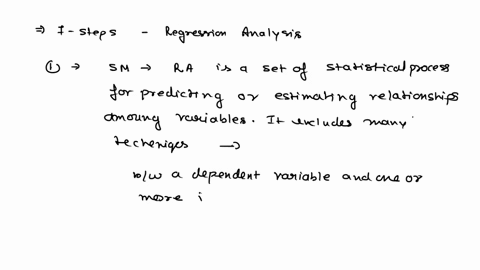 ⇒ I-steps - Regression Analysis
① → SM → RA is a set of statistical process
for predicting or estimating relationships
among variables. It excludes many
techeniqes →
b/w a dependent variable and one or
more i